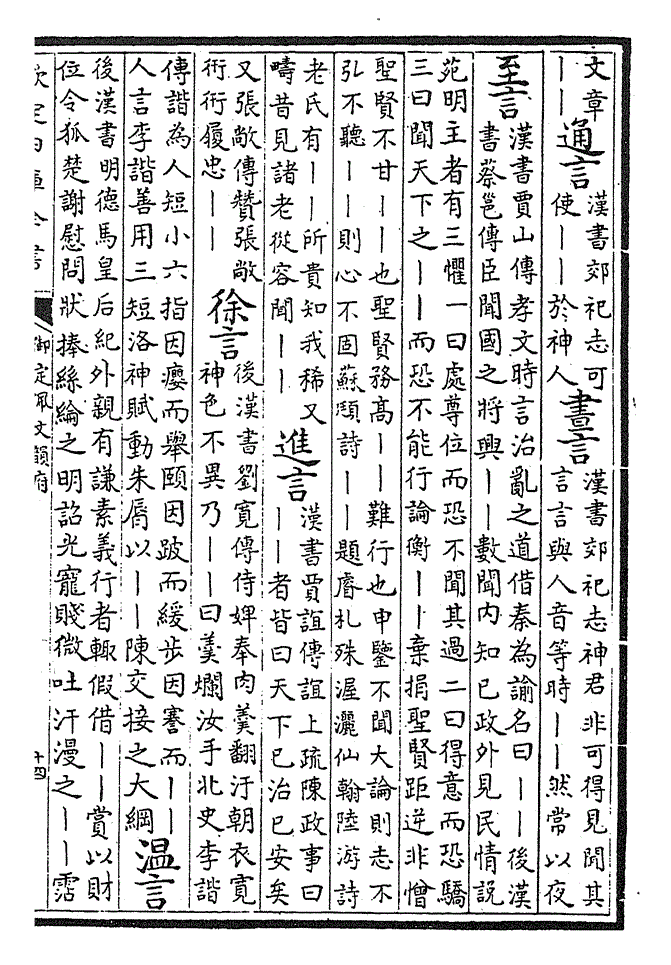 文章
——
通言
漢書郊祀志可
使——於神人
晝言
漢書郊祀志神君非可得見聞其
言言與人音等時——然常以夜
至言
漢書賈山傳孝文時言治亂之道借秦為諭名曰——後漢
書蔡邕傳臣聞國之將興——數聞内知已政外見民情説
苑明主者有三懼一曰處尊位而恐不聞其過二曰得意而恐驕
三曰聞天下之——而恐不能行論衡——棄捐聖賢距逆非憎
聖賢不甘——也聖賢務高——難行也申鑒不聞大論則志不
弘不聽——則心不固蘇頲詩——題睿札殊渥灑仙翰陸游詩
老氏有——所貴知我稀又
疇昔見諸老從容聞——
進言
漢書賈誼傳誼上疏陳政事曰
——者皆曰天下已治已安矣
又張敞傳贊張敞
衎衎履忠——
徐言
後漢書劉寛傳侍婢奉肉羹翻汙朝衣寛
神色不異乃——曰羹爛汝手北史李諧
傳諧為人短小六指因癭而舉頤因跛而緩步因謇而——
人言李諧善用三短洛神賦動朱脣以——陳交接之大綱
温言
後漢書明德馬皇后紀外親有謙素義行者輒假借——賞以財
位令狐楚謝慰問狀捧絲綸之明詔光寵賤微吐汗漫之——霑
欽定四庫全書
御定佩文韻府
十四